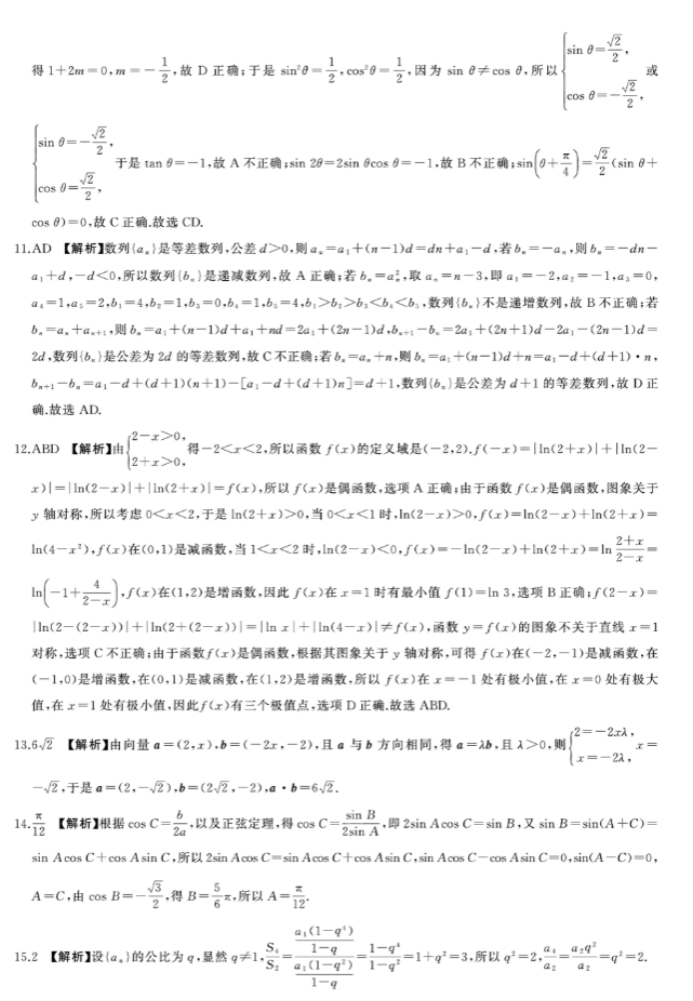 得 1+2m=0,m=-1/2,故 D 正确;于是 sin²θ=1/2,cos²θ=1/2,因为 sin θ≠cos θ,所以{sin θ=√2/2, cos θ=-√2/2, 或
{sin θ=-√2/2, cos θ=√2/2, 于是 tan θ=-1,故 A 不正确;sin 2θ=2sin θcos θ=-1,故 B 不正确;sin(θ+π/4)=√2/2(sin θ+
cos θ)=0,故 C 正确.故选 CD.
11.AD 【解析】数列{aₙ}是等差数列,公差 d>0,则 aₙ=a₁+(n-1)d=dn+a₁-d,若 bₙ=-aₙ,则 bₙ=-dn-
a₁+d,-d<0,所以数列{bₙ}是递减数列,故 A 正确;若 bₙ=aₙ²,取 aₙ=n-3,即 a₁=-2,a₂=-1,a₃=0,
a₄=1,a₅=2,b₁=4,b₂=1,b₃=0,b₄=1,b₅=4,b₁>b₂>b₃<b₄<b₅,数列{bₙ}不是递增数列,故 B 不正确;若
bₙ=aₙ+aₙ₊₁,则 bₙ=a₁+(n-1)d+a₁+nd=2a₁+(2n-1)d,bₙ₊₁-bₙ=2a₁+(2n+1)d-2a₁-(2n-1)d=
2d,数列{bₙ}是公差为 2d 的等差数列,故 C 不正确;若 bₙ=aₙ+n,则 bₙ=a₁+(n-1)d+n=a₁-d+(d+1)·n,
bₙ₊₁-bₙ=a₁-d+(d+1)(n+1)-[a₁-d+(d+1)n]=d+1,数列{bₙ}是公差为 d+1 的等差数列,故 D 正
确.故选 AD.
12.ABD 【解析】由{2-x>0, 2+x>0, 得-2<x<2,所以函数 f(x)的定义域是(-2,2).f(-x)=|ln(2+x)|+|ln(2-
x)|=|ln(2-x)|+|ln(2+x)|=f(x),所以 f(x)是偶函数,选项 A 正确;由于函数 f(x)是偶函数,图象关于
y 轴对称,所以考虑 0<x<2,于是 ln(2+x)>0,当 0<x<1 时,ln(2-x)>0,f(x)=ln(2-x)+ln(2+x)=
ln(4-x²),f(x)在(0,1)是减函数,当 1<x<2 时,ln(2-x)<0,f(x)=-ln(2-x)+ln(2+x)=ln (2+x)/(2-x)=
ln(-1+4/(2-x)),f(x)在(1,2)是增函数,因此 f(x)在 x=1 时有最小值 f(1)=ln 3,选项 B 正确;f(2-x)=
|ln(2-(2-x))|+|ln(2+(2-x))|=|ln x|+|ln(4-x)|≠f(x),函数 y=f(x)的图象不关于直线 x=1
对称,选项 C 不正确;由于函数f(x)是偶函数,根据其图象关于 y 轴对称,可得 f(x)在(-2,-1)是减函数,在
(-1,0)是增函数,在(0,1)是减函数,在(1,2)是增函数,所以 f(x)在 x=-1 处有极小值,在 x=0 处有极大
值,在 x=1 处有极小值,因此f(x)有三个极值点,选项 D 正确.故选 ABD.
13.6√2 【解析】由向量 a=(2,x),b=(-2x,-2),且 a 与 b 方向相同,得 a=λb,且 λ>0,则{2=-2xλ, x=-2λ, x=
-√2,于是 a=(2,-√2),b=(2√2,-2),a·b=6√2.
14.π/12 【解析】根据 cos C=b/2a,以及正弦定理,得 cos C=sin B/2sin A,即 2sin Acos C=sin B,又 sin B=sin(A+C)=
sin Acos C+cos Asin C,所以 2sin Acos C=sin Acos C+cos Asin C,sin Acos C-cos Asin C=0,sin(A-C)=0,
A=C,由 cos B=-√3/2,得 B=5/6π,所以 A=π/12.
15.2 【解析】设{aₙ}的公比为 q,显然 q≠1,S₄/S₂=(a₁(1-q⁴)/(1-q))/(a₁(1-q²)/(1-q))=(1-q⁴)/(1-q²)=1+q²=3,所以 q²=2,a₄/a₂=a₂q²/a₂=q²=2.